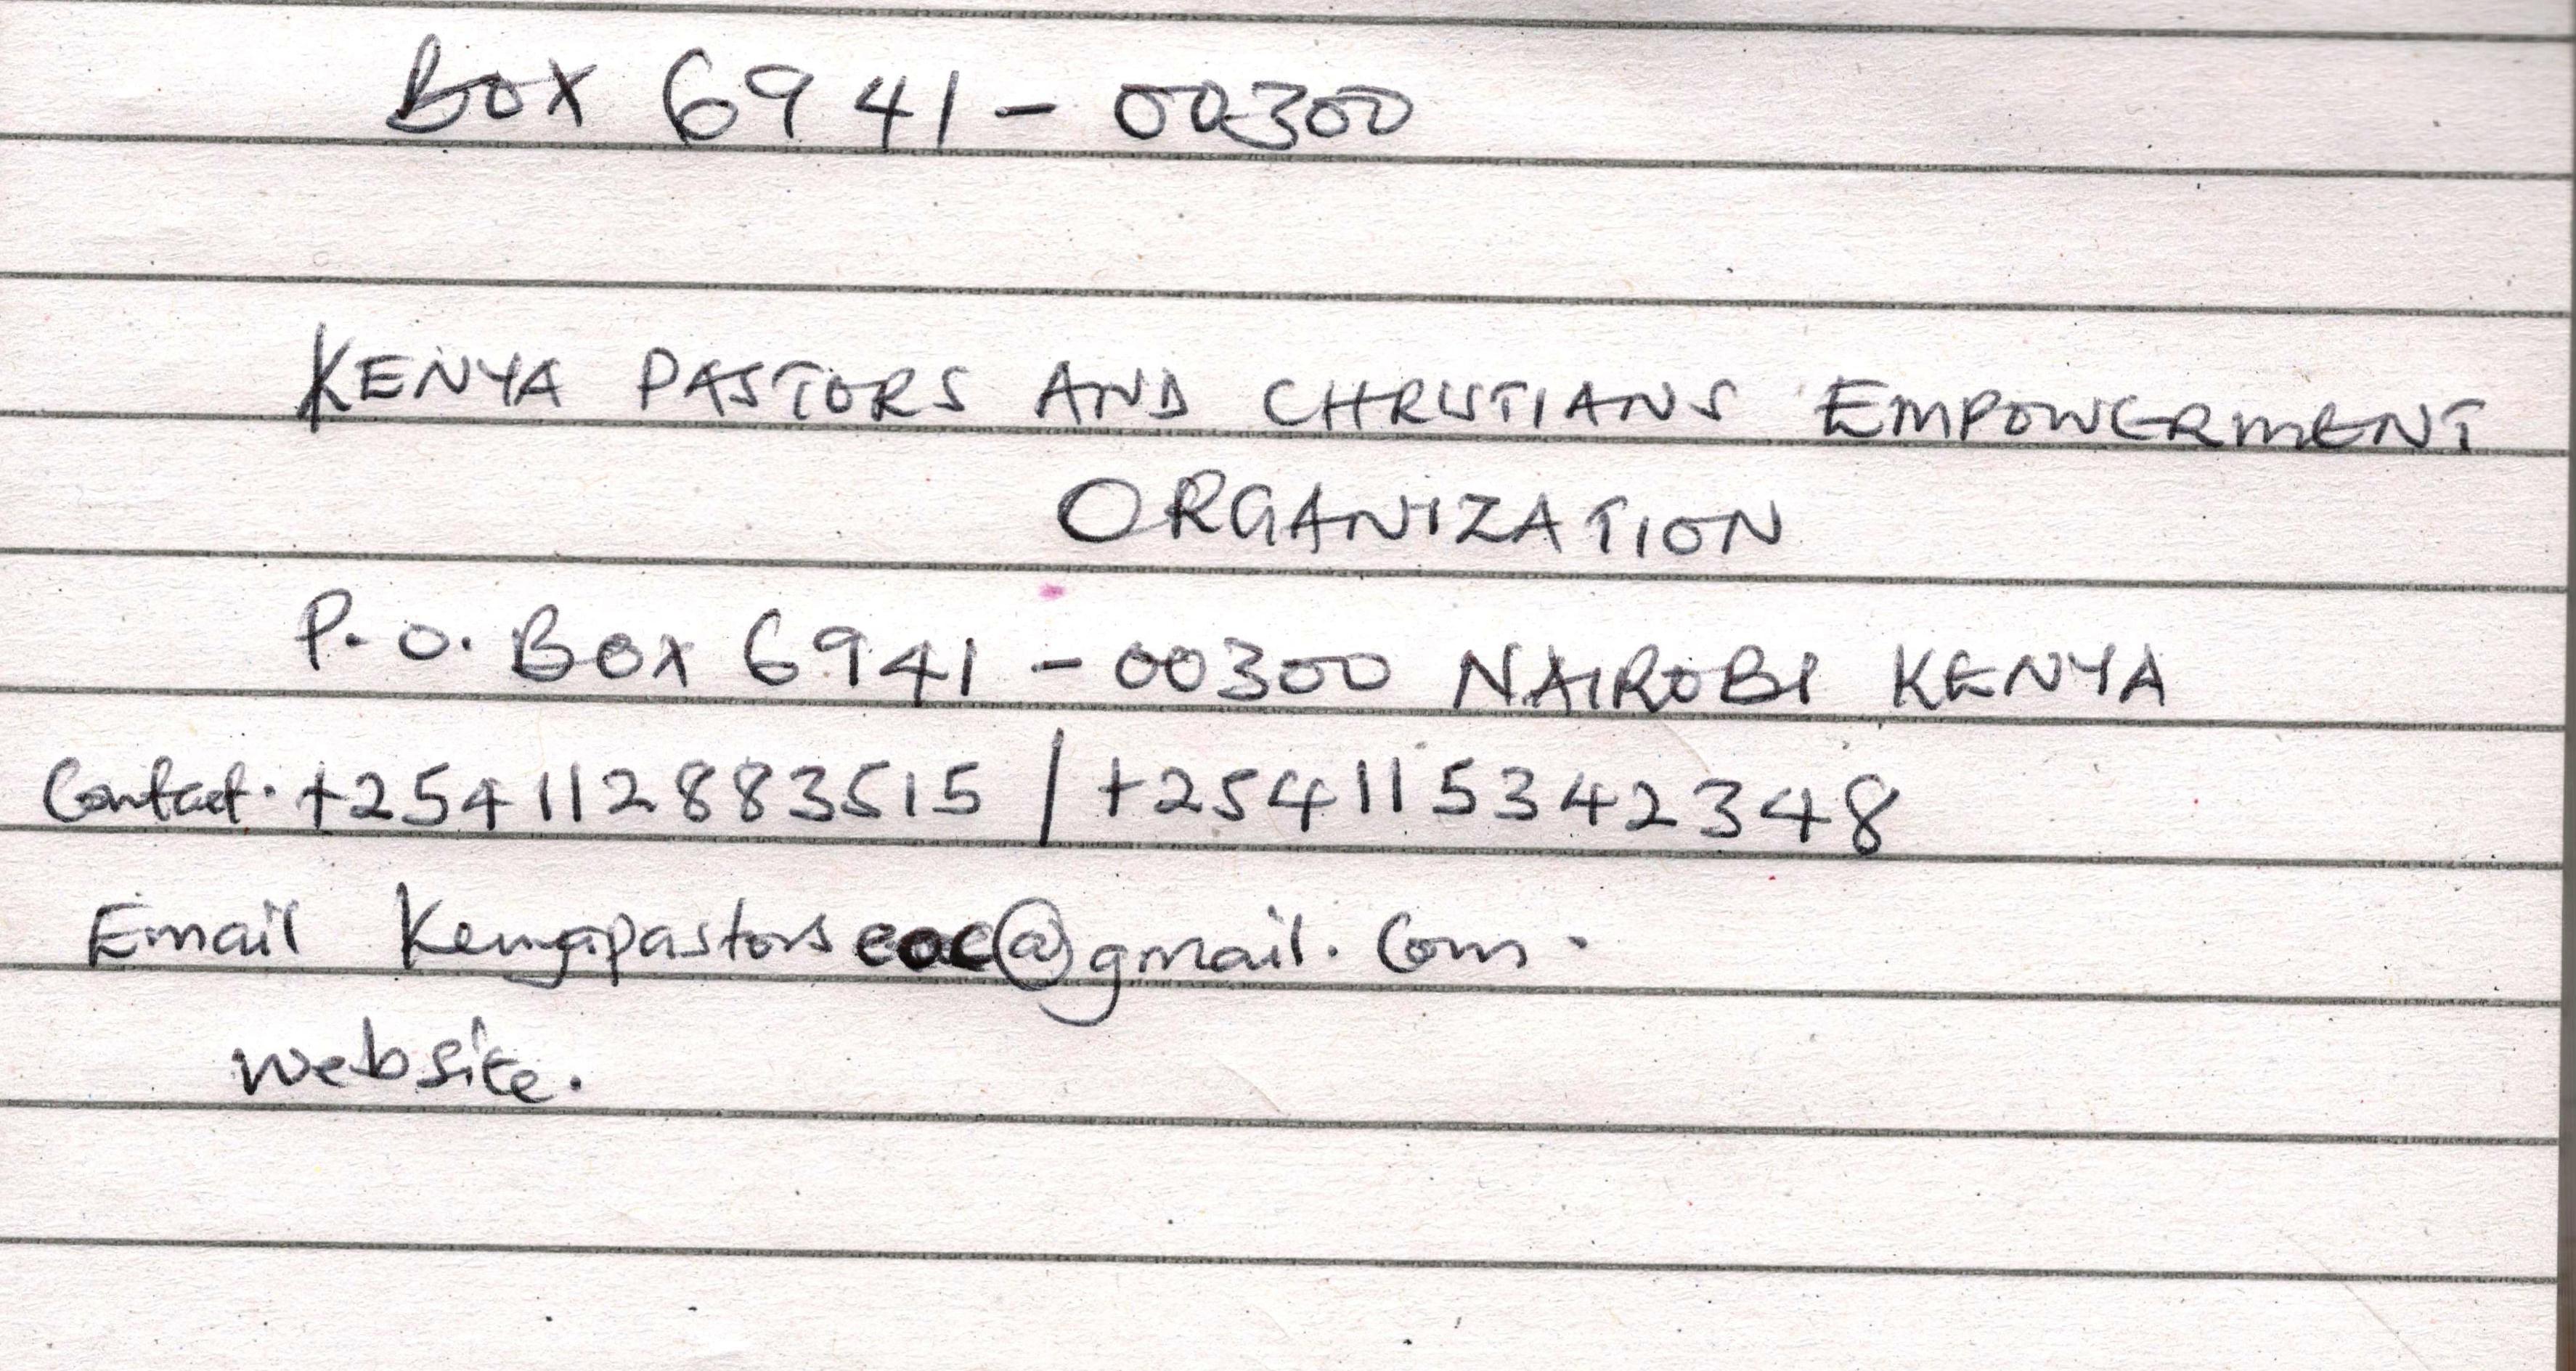 Box 6941 - 00300
KENYA PASTORS AND CHRISTIANS EMPOWERMENT
ORGANIZATION
P.O. BOX 6941 - 00300 NAIROBI KENYA
Contact. +254112883515 / +254115342348
Email Kenyapastorseoc@gmail.com.
website.